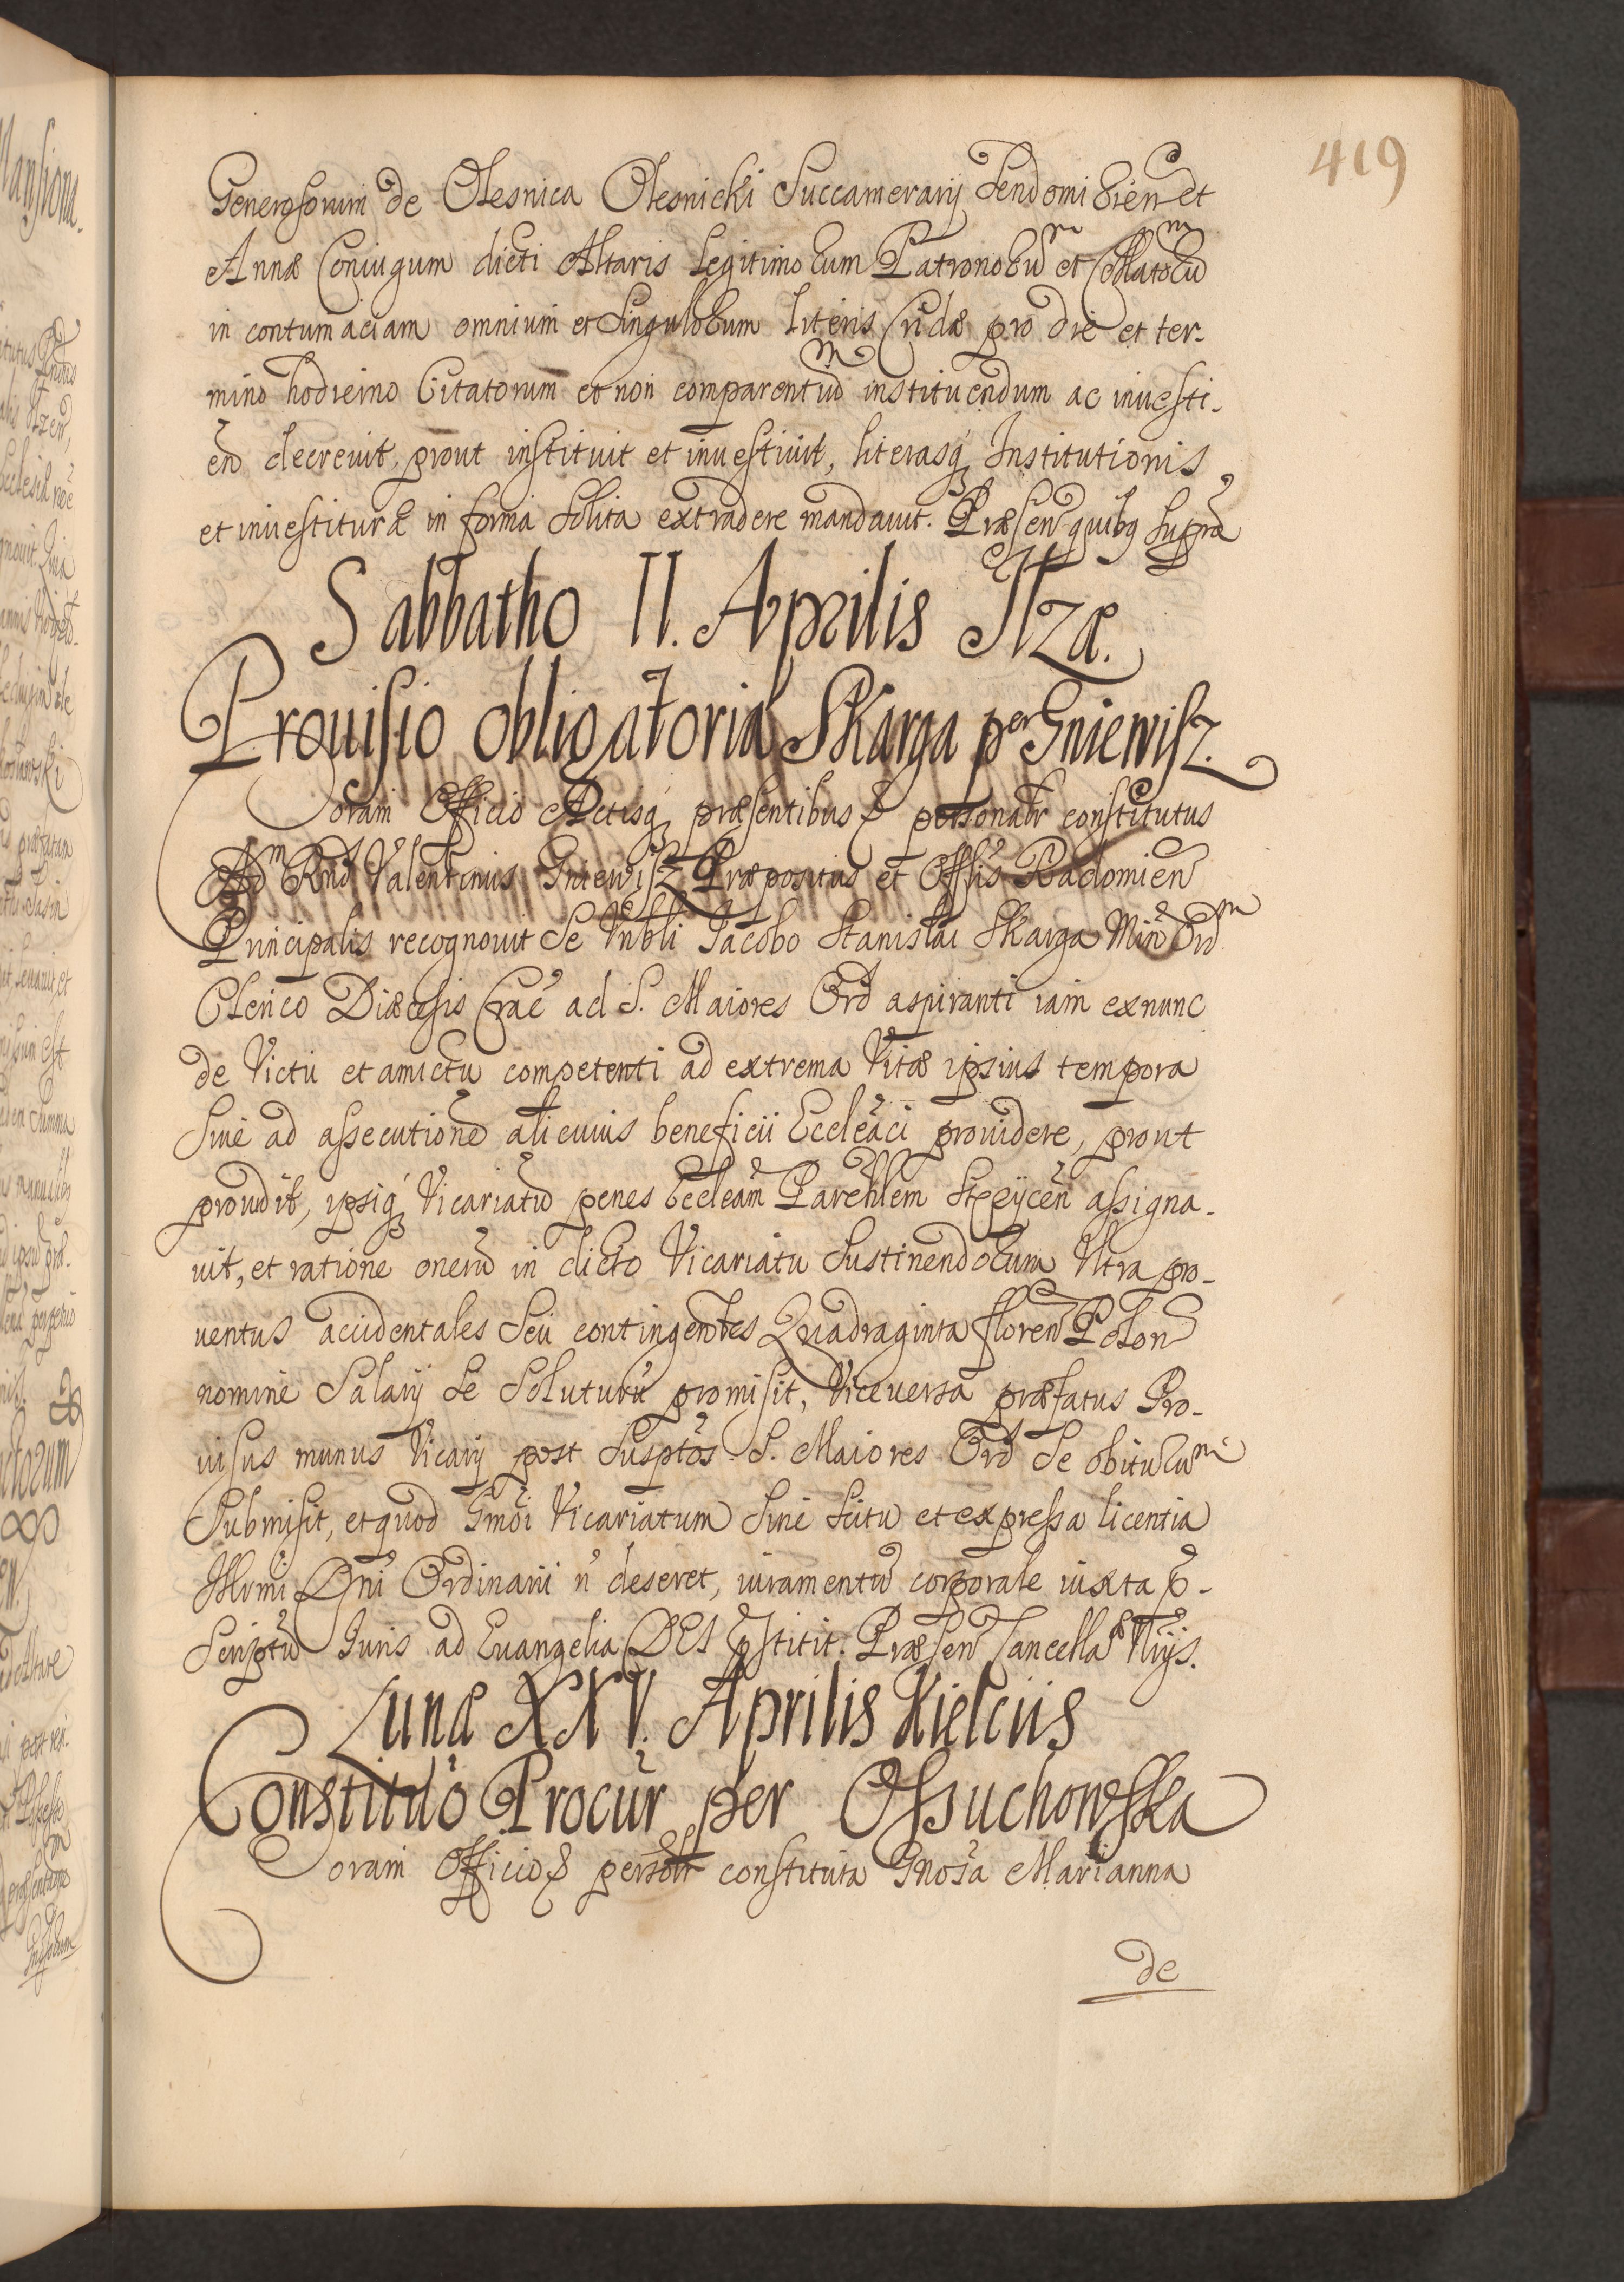 419
Generosorum de Olesnica Olesnicki Succamerarij Sendomirien et
Annæ Coniugum dicti Altaris legitimorum Patronorum et Collatorum
in contumaciam omnium et singulorum literis Cridæ pro die et ter-
mino hodierno Citatorum et non comparentium instituendum ac inuesti-
end decreuit, prout instituit et inuestiuit, literasq Institutionis
et inuestituræ in forma solita extradere mandauit. Præsen quibq supra
Sabbatho II. Aprilis Ilzæ.
Prouisio obligatoria Skarga per Gniewisz.
Coram Officio Actisq præsentibus personalr constitutus
Adm Rnd Valentinus Gniewisz Præpositus et Offlis Radomien
Principalis recognouit se Vnbli Jacobo Stanislai Skarga Min Ordm
Clerico Diæcesis Crac ad S. Maiores Ord aspiranti iam exnunc
de Victu et amictu competenti ad extrema Vitæ ipsius tempora
siue ad assecutione alicuius beneficii Eccleaci prouidere, prout
prouidit, ipsiq Vicariatu penes Eccleam Parchlem assigna-
uit, et ratione oneru in dicto Vicariatu sustinendorum Vltra pro-
uentus accidentales seu contingentes Quadraginta floren Polon
nomine Salarij se soluturu promisit, Viceuersa præfatus Pro-
uisus munus Vicarij post susptos S. Maiores Ord se obiturum
submisit, et quod Gmoi Vicariatum sine scitu et expressa licentia
Illrmi Dni Ordinarii n deseret, iuramentu corporale iuxta p-
scriptu Iuris ad Euangelia DEI pstitit. Præsen Cancellæ Nrijs.
Lunæ XXV. Aprilis Kielciis
Constituo Procur per Ossuchowska
Coram Officio personlr constituta Gnosa Marianna
de